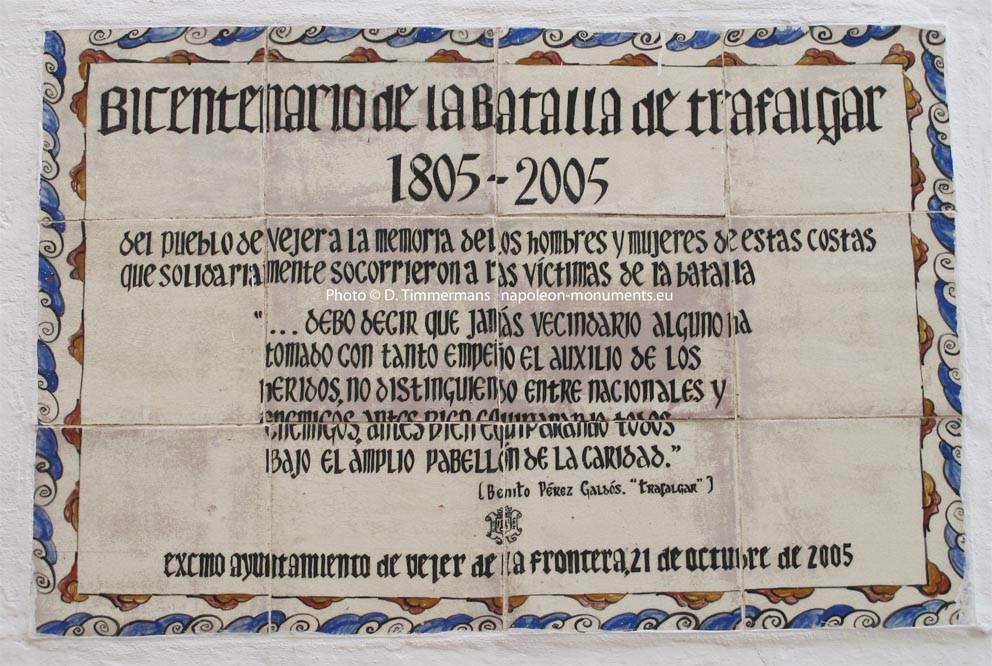 Bicentenario de la Batalla de Trafalgar
1805-2005
del pueblo de Vejer a la memoria de los hombres y mujeres de estas costas
que solidariamente socorrieron a las víctimas de la batalla
Photo © D. Timmermans napoleon-monuments.eu
"... debo decir que jamás vecindario alguno ha
tomado con tanto empeño el auxilio de los
heridos, no distinguiendo entre nacionales y
enemigos, antes bien equiparando todos
bajo el amplio pabellón de la caridad."
(Benito Pérez Galdós. "Trafalgar")
Excmo Ayuntamiento de Vejer de la Frontera, 21 de octubre de 2005